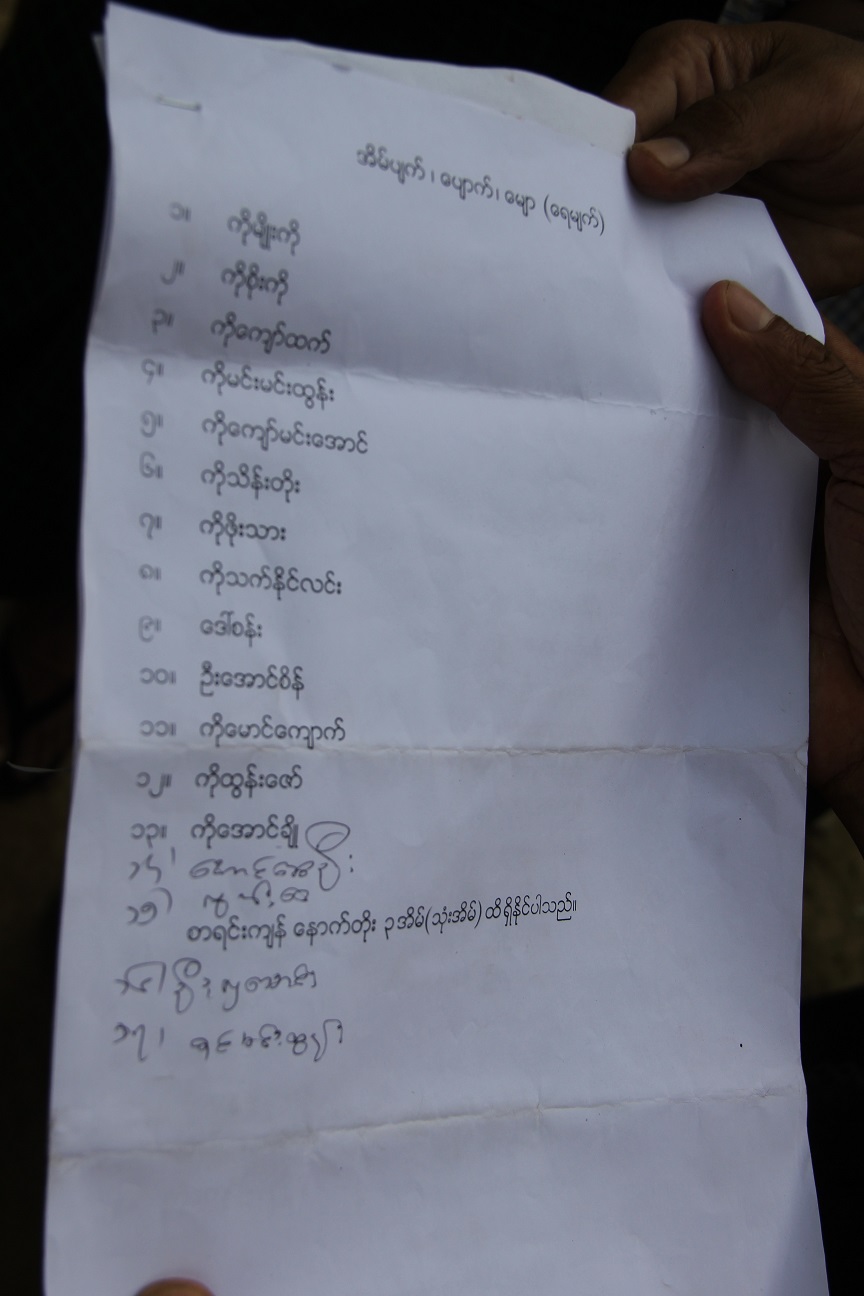 အိမ်ပျက်၊ ပျောက်၊ မျော (ရေမျက်)
၁။ ကိုမျိုးကို
၂။ ကိုစိုးကို
၃။ ကိုကျော်ထက်
၄။ ကိုမင်းမင်းထွန်း
၅။ ကိုကျော်မင်းအောင်
၆။ ကိုသိန်းတိုး
၇။ ကိုဖိုးသား
၈။ ကိုသက်နိုင်လင်း
၉။ ဒေါ်စန်း
၁၀။ ဦးအောင်စိန်
၁၁။ ကိုမောင်ကျောက်
၁၂။ ကိုထွန်းဇော်
၁၃။ ကိုအောင်ချို
၁၄၊
၁၅၊
စာရင်းကျန် နောက်တိုး ၃အိမ်(သုံးအိမ်) ထိရှိနိုင်ပါသည်။
၁၆၊
၁၇၊